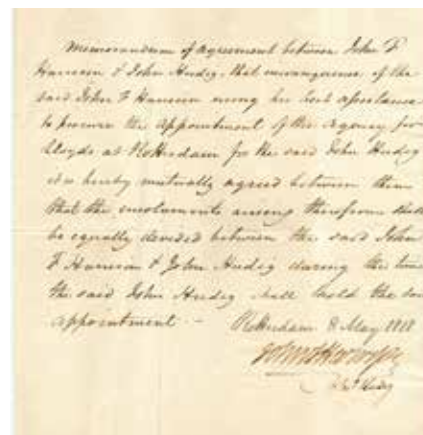 Memorandum of agreement between John F
Harrison & John Hudig, that in consequence of the
said John F Harrison using his best assistance
to procure the appointment of the agency for
Lloyds at Rotterdam for the said John Hudig
it is hereby mutually agreed between them
that the emoluments arising therefrom shall
be equally divided between the said John
F Harrison & John Hudig during the time
the said John Hudig shall hold the
appointment –
Rotterdam 8 May 1818
Hudig